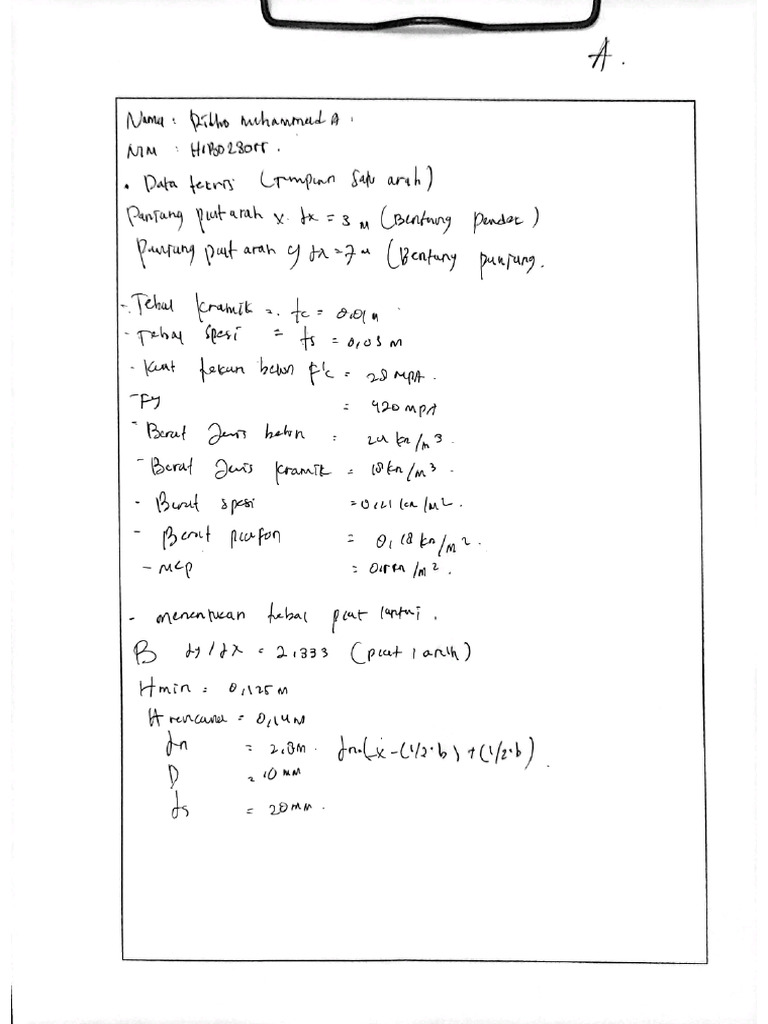 A.
Nama : Ridho Muhammad A.
NIM : H1B028055.
• Data teknis (Tumpuan satu arah)
Panjang plat arah x. lx = 3 m (Bentang pendek)
Panjang plat arah y lx = 7 m (Bentang panjang.
- Tebal kramik = tc = 0.01 m
- Tebal spesi = ts = 0,03 m
- Kuat tekan beton f'c = 28 MPA.
- Fy = 420 MPA
- Berat Jenis beton : 24 kn/m3.
- Berat Jenis kramik = 18 kn/m3.
- Berat spesi = 0,21 kn/m2.
- Berat plafon = 0,18 kn/m2.
- MEP = kn/m2.
- menentukan tebal plat lantai.
B ly/lx = 2,333 (plat 1 arah)
Hmin = 0,125 m
H rencana = 0,14 m
ln = 2,8 m. ln=(x-(1/2.b)+(1/2.b).
D = 10 mm
ds = 20 mm.